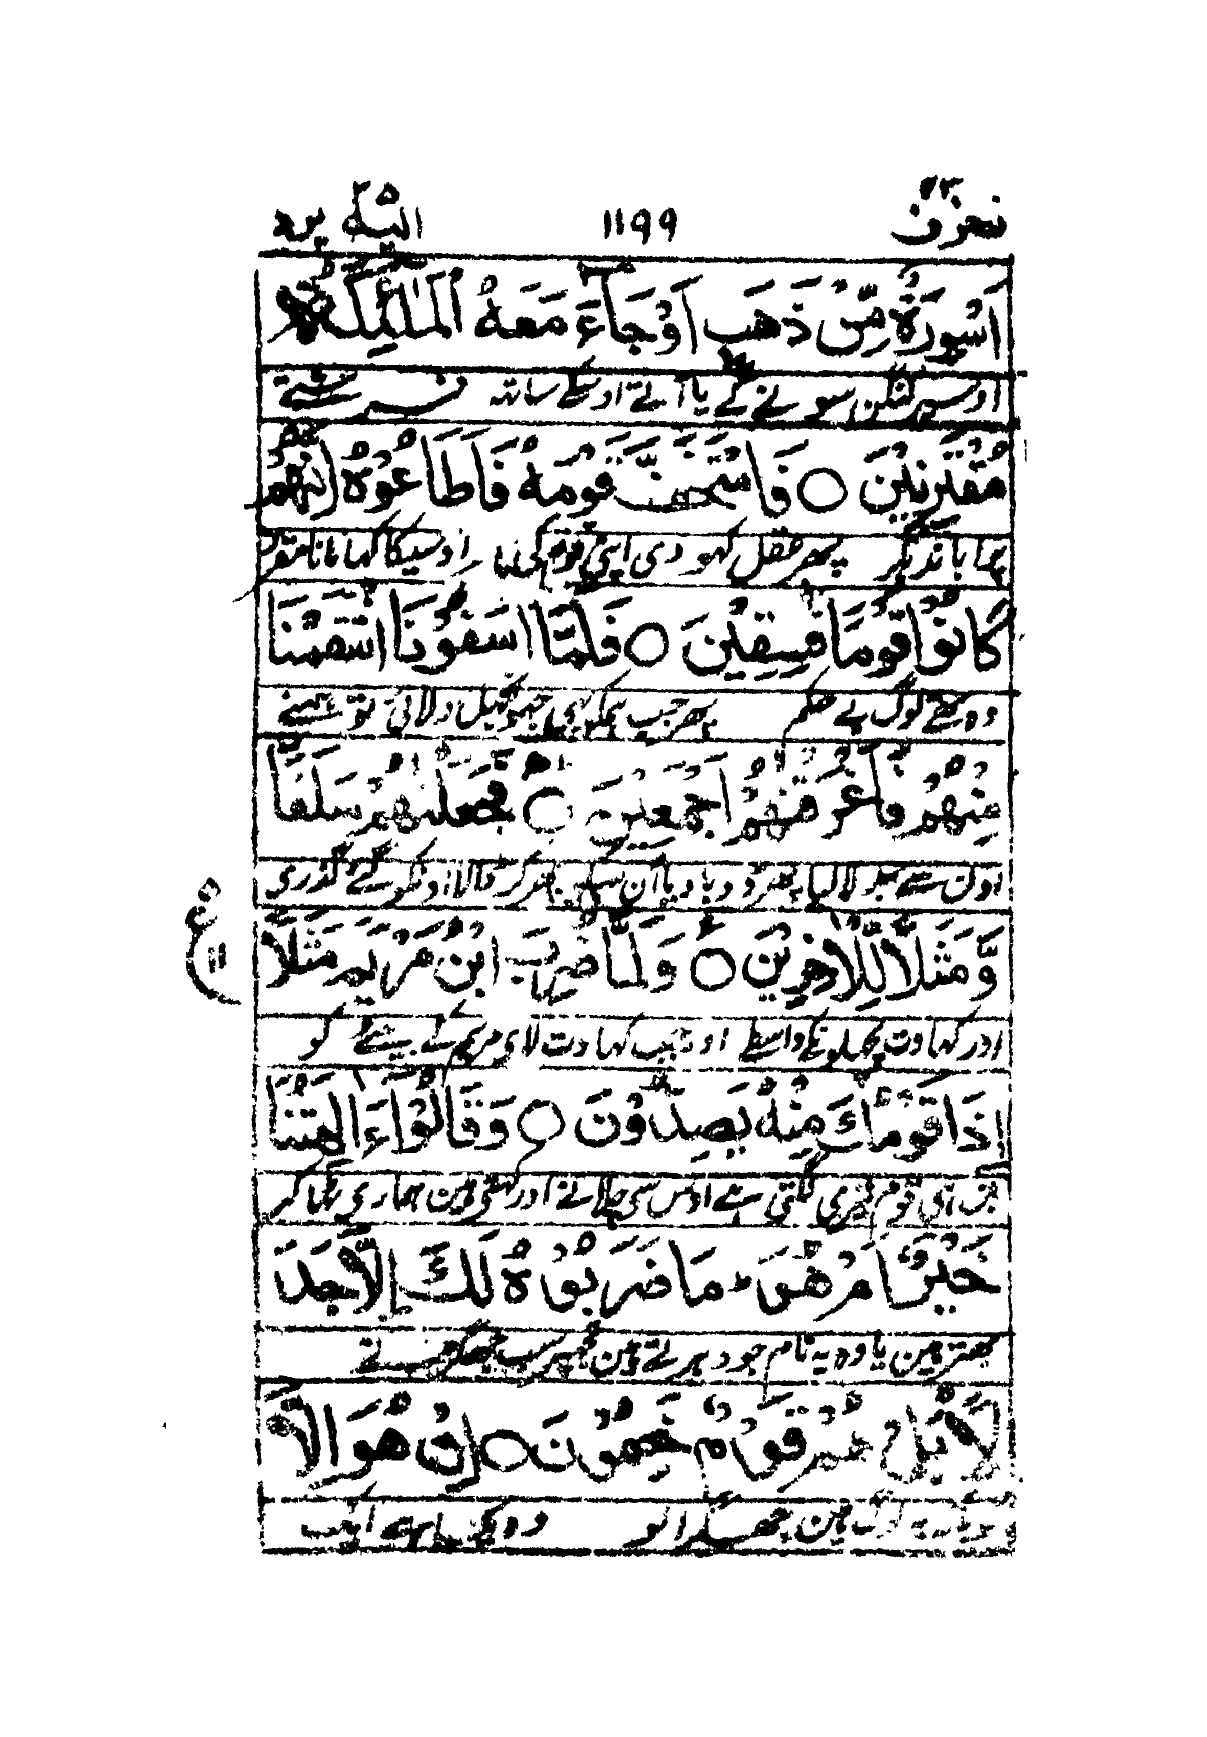 ۴۳ زخرف ۱۱۹۹ اليه يرد ۲۵
اَسْوِرَةٌ مِّنْ ذَهَبٍ اَوْ جَآءَ مَعَهُ الْمَلٰٓئِكَةُ
اوسپر کنگن سونے کے یا آتے اوسکے ساتھ فرشتے
مُقْتَرِنِيْنَ ○ فَاسْتَخَفَّ قَوْمَهٗ فَاَطَاعُوْهُ اِنَّهُمْ
پرا باندہکر پھر عقل کھودی اپنی قوم کی پھر اوسیکا کہا مانا مقرر
كَانُوْا قَوْمًا فٰسِقِيْنَ ○ فَلَمَّا اٰسَفُوْنَا انْتَقَمْنَا
وہ تھے لوگ بے حکم پھر جب ہمکو جھونجھل دلائی تو ہمنے
مِنْهُمْ فَاَغْرَقْنٰهُمْ اَجْمَعِيْنَ ○ فَجَعَلْنٰهُمْ سَلَفًا
اون سے بدلا لیا پھر ڈوبا دیا اون سبکو پھر کر ڈالا اونکو گئے گذری
وَّمَثَلًا لِّلْاٰخِرِيْنَ ○ وَلَمَّا ضُرِبَ ابْنُ مَرْيَمَ مَثَلًا
ع ۱۱
اور کہاوت پچھلونکے واسطے اور جب کہاوت لای مریم کے بیٹے کو
اِذَا قَوْمُكَ مِنْهُ يَصِدُّوْنَ ○ وَقَالُوْٓا ءَاٰلِهَتُنَا
تب ہی قوم تیری لگتی ہے اوس سی چلانے اور کہتی ہین ہماری ٹھاکر
خَيْرٌ اَمْ هُوَ ؕ مَا ضَرَبُوْهُ لَكَ اِلَّا جَدَ
بہتر ہین یا وہ یہ نام جو دہرتے ہین تجھپر سب جھگڑنے
لًا بَلْ هُمْ قَوْمٌ خَصِمُوْنَ ○ اِنْ هُوَ اِلَّا
یہ لوگ ہین جھگڑالو وہ کیا ہے ایک